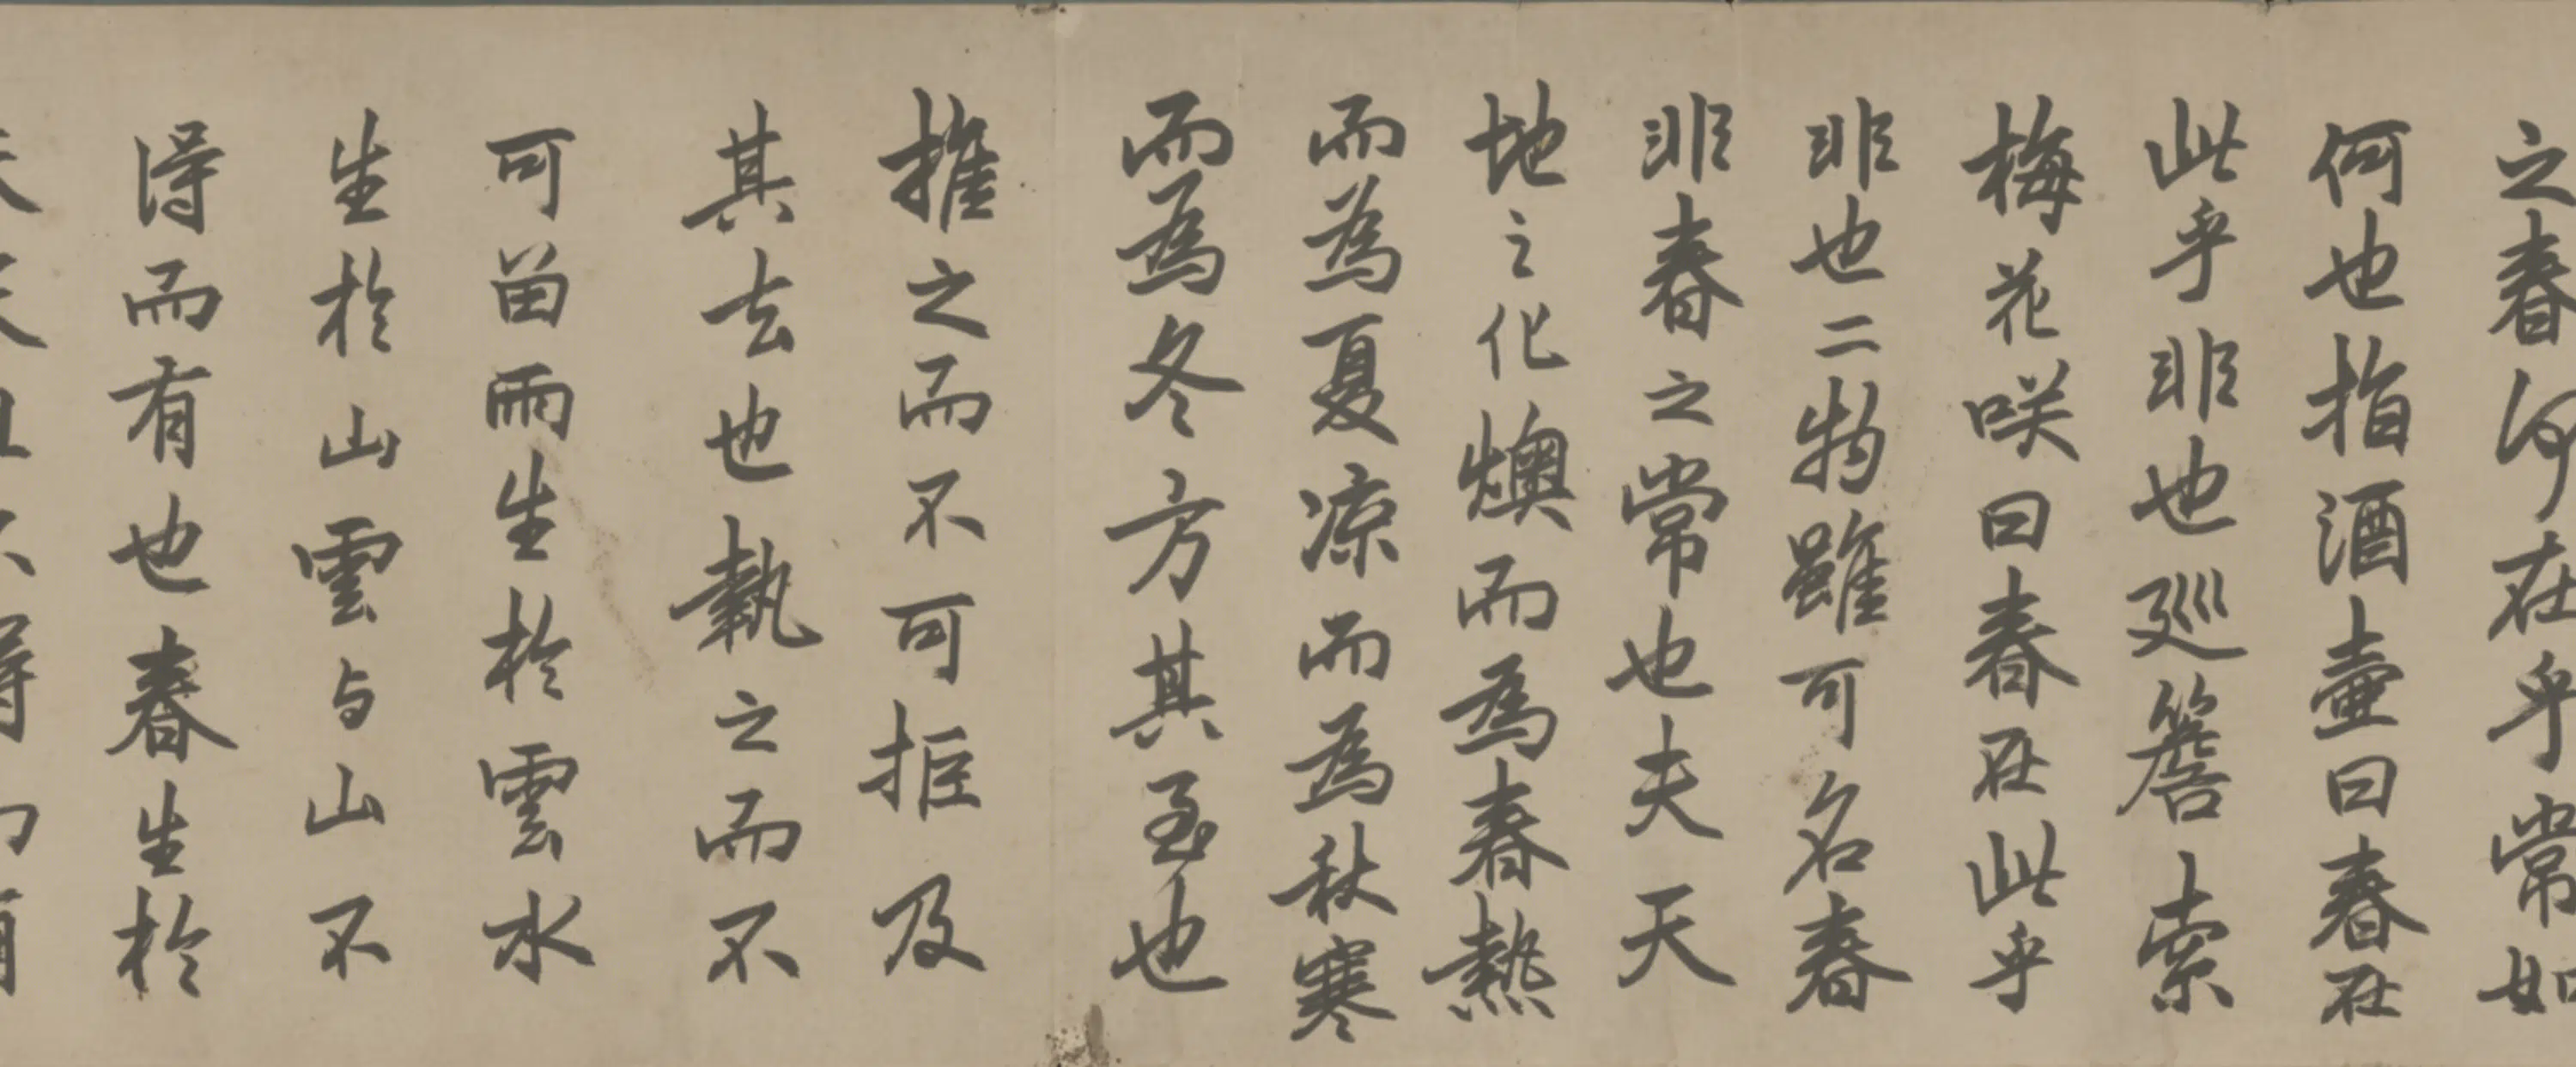 之春何在乎常如
何也指酒壷曰春在
此乎非也廵簷索
梅花咲曰春在此乎
非也二物雖可名春
非春之常也夫天
地之化燠而為春熱
而為夏凉而為秋寒
而為冬方其至也
推之而不可拒及
其去也執之而不
可留雨生於雲水
生於山雲与山不
得而有也春生於